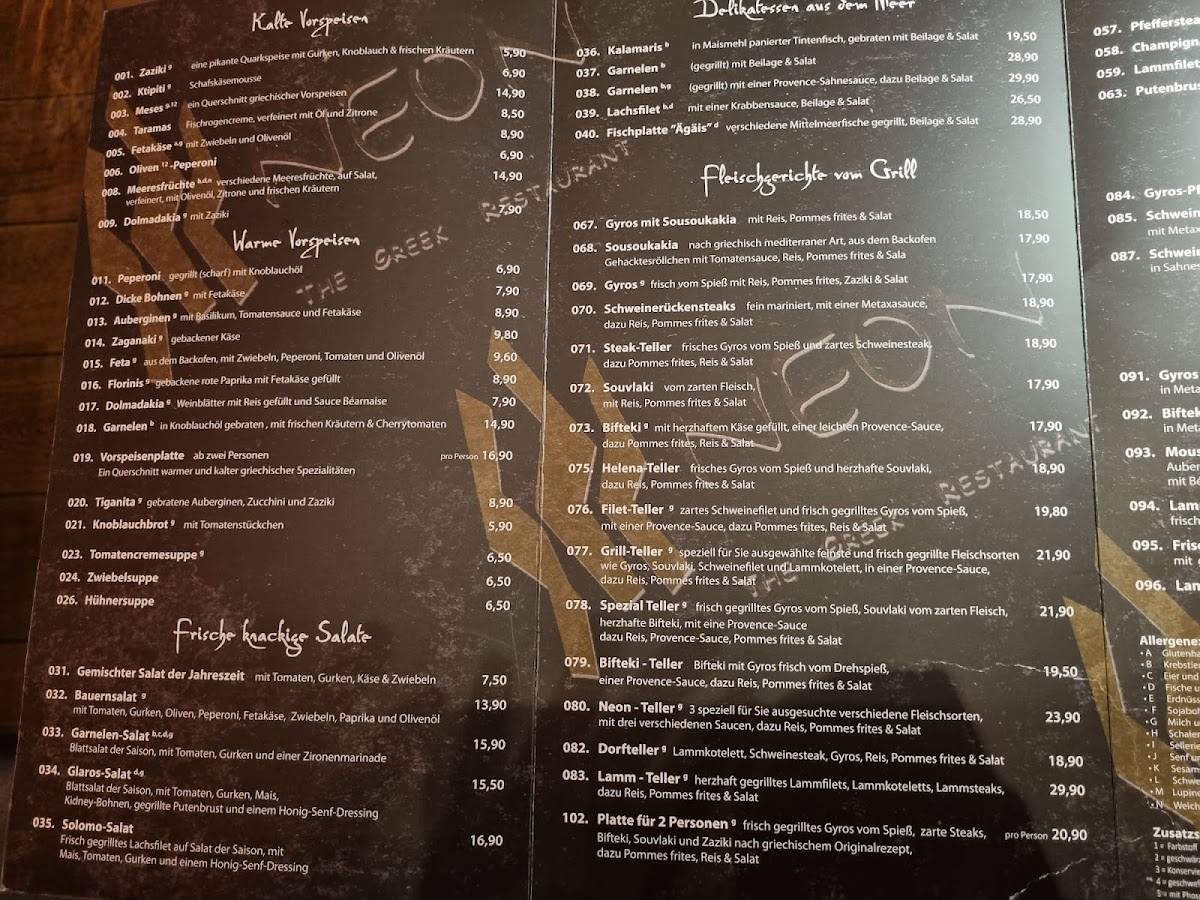 Kalte Vorspeisen
001. Zaziki g eine pikante Quarkspeise mit Gurken, Knoblauch & frischen Kräutern 5,90
002. Ktipiti g Schafskäsemousse 6,90
003. Meses g,12 ein Querschnitt griechischer Vorspeisen 14,90
004. Taramas Fischrogencreme, verfeinert mit Öl und Zitrone 8,50
005. Fetakäse a,g mit Zwiebeln und Olivenöl 8,90
006. Oliven 12 -Peperoni 6,90
008. Meeresfrüchte b,d,n verschiedene Meeresfrüchte, auf Salat, 14,90
verfeinert, mit Olivenöl, Zitrone und frischen Kräutern
009. Dolmadakia g mit Zaziki 7,90
Warme Vorspeisen
011. Peperoni gegrillt (scharf) mit Knoblauchöl 6,90
012. Dicke Bohnen g mit Fetakäse 7,90
013. Auberginen g mit Basilikum, Tomatensauce und Fetakäse 8,90
014. Zaganaki g gebackener Käse 9,80
015. Feta g aus dem Backofen, mit Zwiebeln, Peperoni, Tomaten und Olivenöl 9,60
016. Florinis g gebackene rote Paprika mit Fetakäse gefüllt 8,90
017. Dolmadakia g Weinblätter mit Reis gefüllt und Sauce Béarnaise 7,90
018. Garnelen b in Knoblauchöl gebraten , mit frischen Kräutern & Cherrytomaten 14,90
019. Vorspeisenplatte ab zwei Personen pro Person 16,90
Ein Querschnitt warmer und kalter griechischer Spezialitäten
020. Tiganita g gebratene Auberginen, Zucchini und Zaziki 8,90
021. Knoblauchbrot g mit Tomatenstückchen 5,90
023. Tomatencremesuppe g 6,50
024. Zwiebelsuppe 6,50
026. Hühnersuppe 6,50
Frische knackige Salate
031. Gemischter Salat der Jahreszeit mit Tomaten, Gurken, Käse & Zwiebeln 7,50
032. Bauernsalat g 13,90
mit Tomaten, Gurken, Oliven, Peperoni, Fetakäse, Zwiebeln, Paprika und Olivenöl
033. Garnelen-Salat b,c,d,g 15,90
Blattsalat der Saison, mit Tomaten, Gurken und einer Zironenmarinade
034. Glaros-Salat d,g 15,50
Blattsalat der Saison, mit Tomaten, Gurken, Mais,
Kidney-Bohnen, gegrillte Putenbrust und einem Honig-Senf-Dressing
035. Solomo-Salat 16,90
Frisch gegrilltes Lachsfilet auf Salat der Saison, mit
Mais, Tomaten, Gurken und einem Honig-Senf-Dressing
NEON
THE GREEK RESTAURANT
Delikatessen aus dem Meer
036. Kalamaris b in Maismehl panierter Tintenfisch, gebraten mit Beilage & Salat 19,50
037. Garnelen b (gegrillt) mit Beilage & Salat 28,90
038. Garnelen b,g (gegrillt) mit einer Provence-Sahnesauce, dazu Beilage & Salat 29,90
039. Lachsfilet b,d mit einer Krabbensauce, Beilage & Salat 26,50
040. Fischplatte "Ägäis" d verschiedene Mittelmeerfische gegrillt, Beilage & Salat 28,90
Fleischgerichte vom Grill
067. Gyros mit Sousoukakia mit Reis, Pommes frites & Salat 18,50
068. Sousoukakia nach griechisch mediterraner Art, aus dem Backofen 17,90
Gehacktesröllchen mit Tomatensauce, Reis, Pommes frites & Sala
069. Gyros g frisch vom Spieß mit Reis, Pommes frites, Zaziki & Salat 17,90
070. Schweinerückensteaks fein mariniert, mit einer Metaxasauce, 18,90
dazu Reis, Pommes frites & Salat
071. Steak-Teller frisches Gyros vom Spieß und zartes Schweinesteak, 18,90
dazu Pommes frites, Reis & Salat
072. Souvlaki vom zarten Fleisch, 17,90
mit Reis, Pommes frites & Salat
073. Bifteki g mit herzhaftem Käse gefüllt, einer leichten Provence-Sauce, 17,90
dazu Pommes frites, Reis & Salat
075. Helena-Teller frisches Gyros vom Spieß und herzhafte Souvlaki, 18,90
dazu Reis, Pommes frites & Salat
076. Filet-Teller g zartes Schweinefilet und frisch gegrilltes Gyros vom Spieß, 19,80
mit einer Provence-Sauce, dazu Pommes frites, Reis & Salat
077. Grill-Teller g speziell für Sie ausgewählte feinste und frisch gegrillte Fleischsorten 21,90
wie Gyros, Souvlaki, Schweinefilet und Lammkotelett, in einer Provence-Sauce,
dazu Reis, Pommes frites & Salat
078. Spezial Teller g frisch gegrilltes Gyros vom Spieß, Souvlaki vom zarten Fleisch, 21,90
herzhafte Bifteki, mit eine Provence-Sauce
dazu Reis, Provence-Sauce, Pommes frites & Salat
079. Bifteki - Teller Bifteki mit Gyros frisch vom Drehspieß, 19,50
einer Provence-Sauce, dazu Reis, Pommes frites & Salat
080. Neon - Teller g 3 speziell für Sie ausgesuchte verschiedene Fleischsorten, 23,90
mit drei verschiedenen Saucen, dazu Reis, Pommes frites & Salat
082. Dorfteller g Lammkotelett, Schweinesteak, Gyros, Reis, Pommes frites & Salat 18,90
083. Lamm - Teller g herzhaft gegrilltes Lammfilets, Lammkoteletts, Lammsteaks, 29,90
dazu Reis, Pommes frites & Salat
102. Platte für 2 Personen g frisch gegrilltes Gyros vom Spieß, zarte Steaks, pro Person 20,90
Bifteki, Souvlaki und Zaziki nach griechischem Originalrezept,
dazu Pommes frites, Reis & Salat
NEON
THE GREEK RESTAURANT
057. Pfeffersteа
058. Champign
059. Lammfilet
063. Putenbrus
084. Gyros-Pf
085. Schwein
mit Metax
087. Schwein
in Sahnes
091. Gyros
in Meta
092. Biftek
in Meta
093. Mous
Auber
mit Bé
094. Lamm
frisch
095. Frisc
mit
096. Lam
Allergene:
• A Glutenha
• B Krebstie
• C Eier und
• D Fische u
• E Erdnüss
• F Sojaboh
• G Milch u
• H Schalen
• I Sellerie
• J Senf un
• K Sesam
• L Schwe
• M Lupine
• N Weich
Zusatzs
1 = Farbstoff
2 = geschwärz
3 = Konservie
4 = geschwef
5 = mit Phos